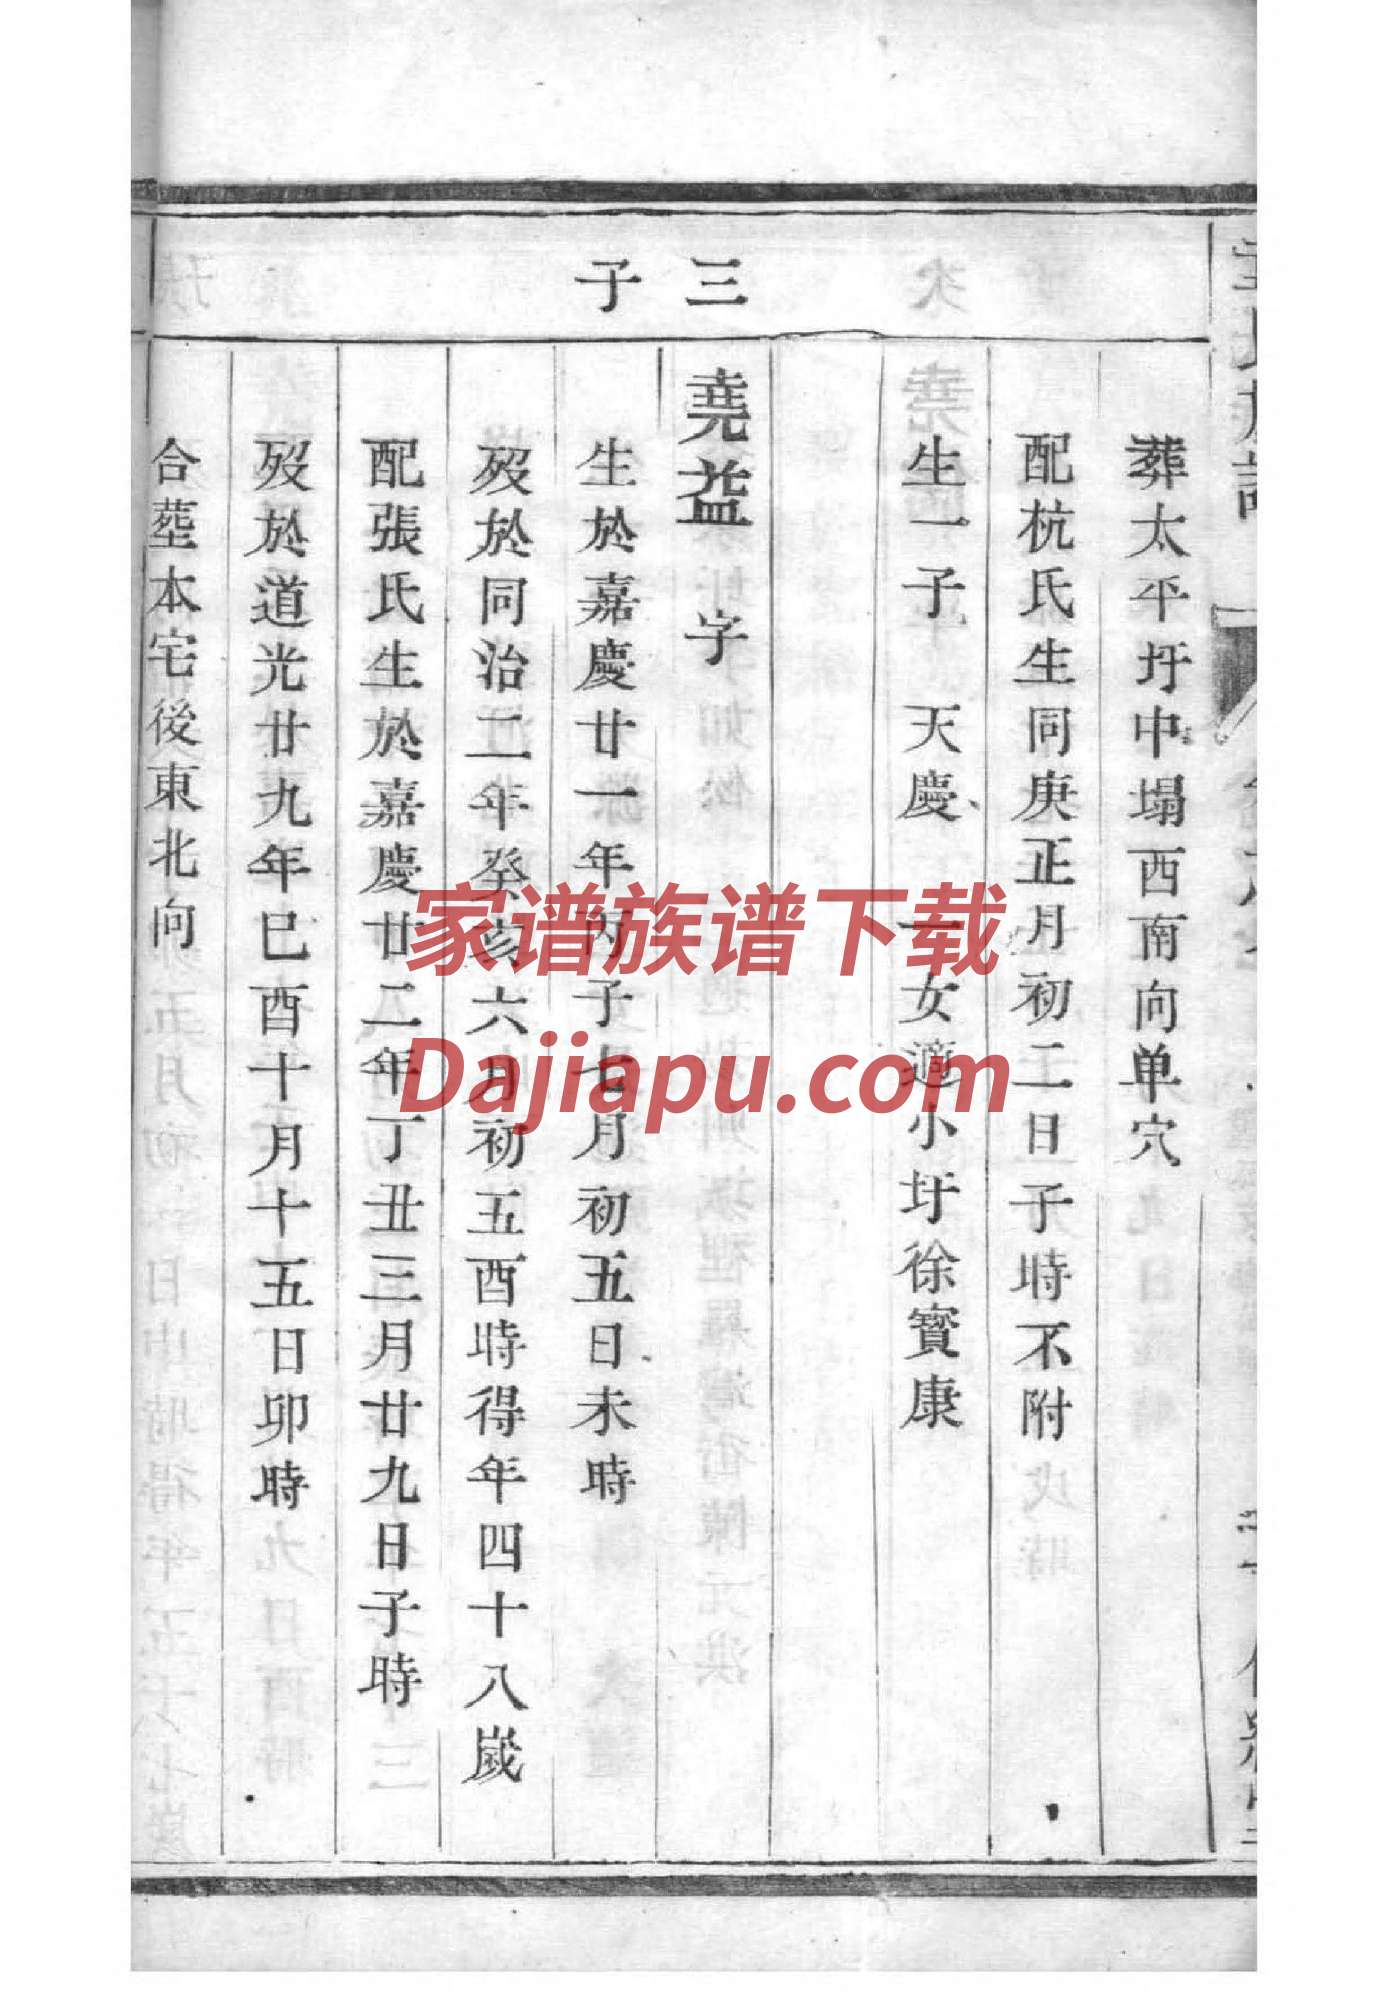 三子
葬太平圩中塌西南向单穴
配杭氏生同庚正月初二日子時不附
生一子 天慶 一女適小圩徐寶康
堯益 字
生於嘉慶廿一年丙子七月初五日未時
歿於同治二年癸亥六月初五酉時得年四十八歲
配張氏生於嘉慶廿二年丁丑三月廿九日子時
歿於道光廿九年巳酉十月十五日卯時
合塟本宅後東北向
家谱族谱下载
Dajiapu.com